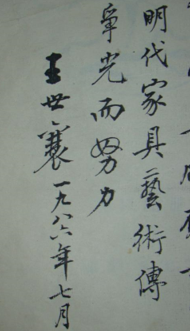 明代家具藝術傳
爭光而努力
王世襄一九八六年七月